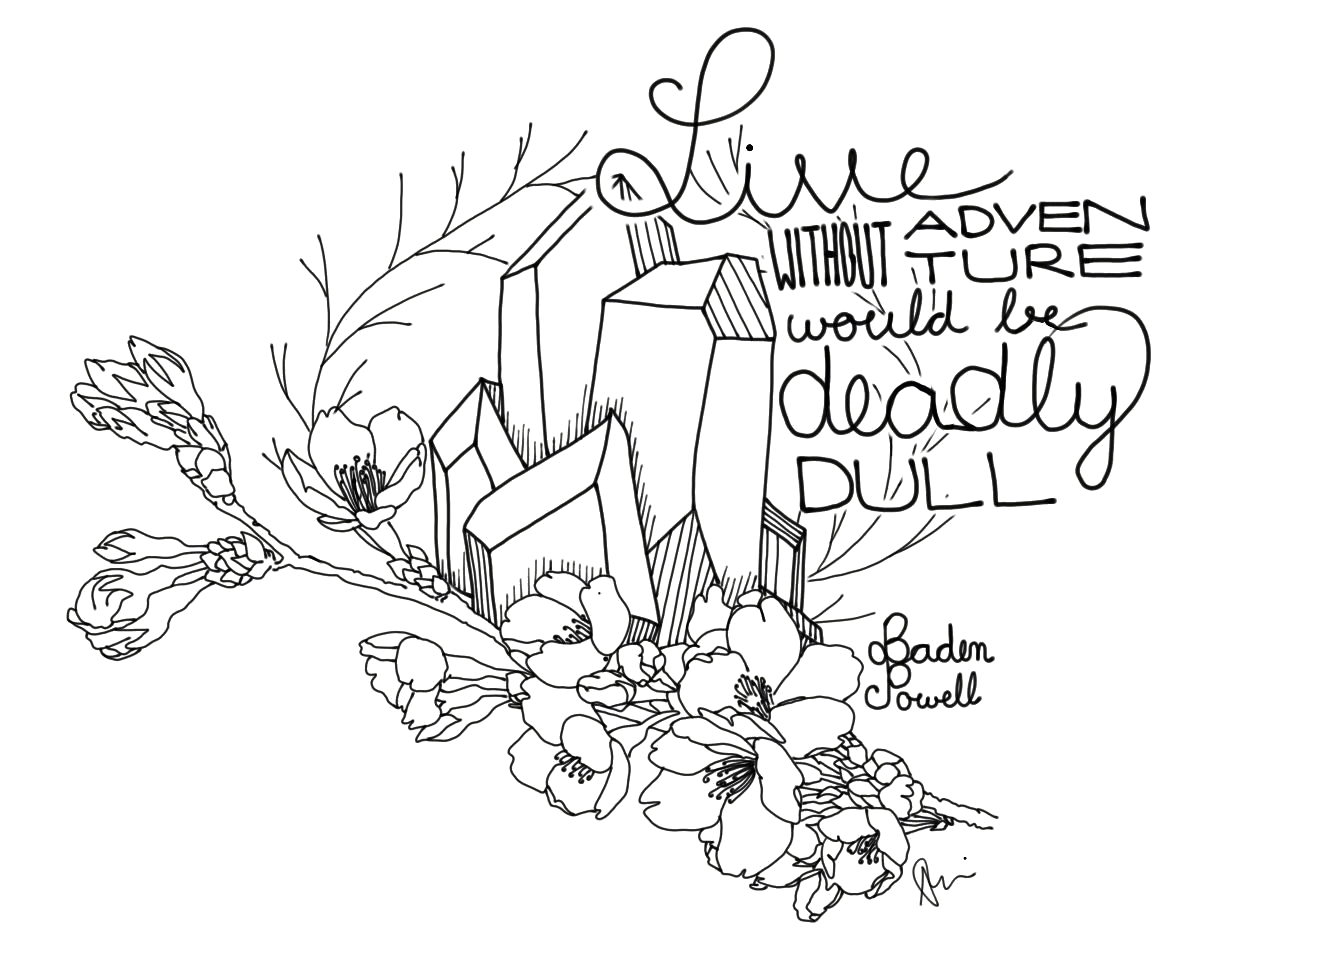 Live
WITHOUT ADVEN
TURE
would be
deadly
DULL
Baden
Powell